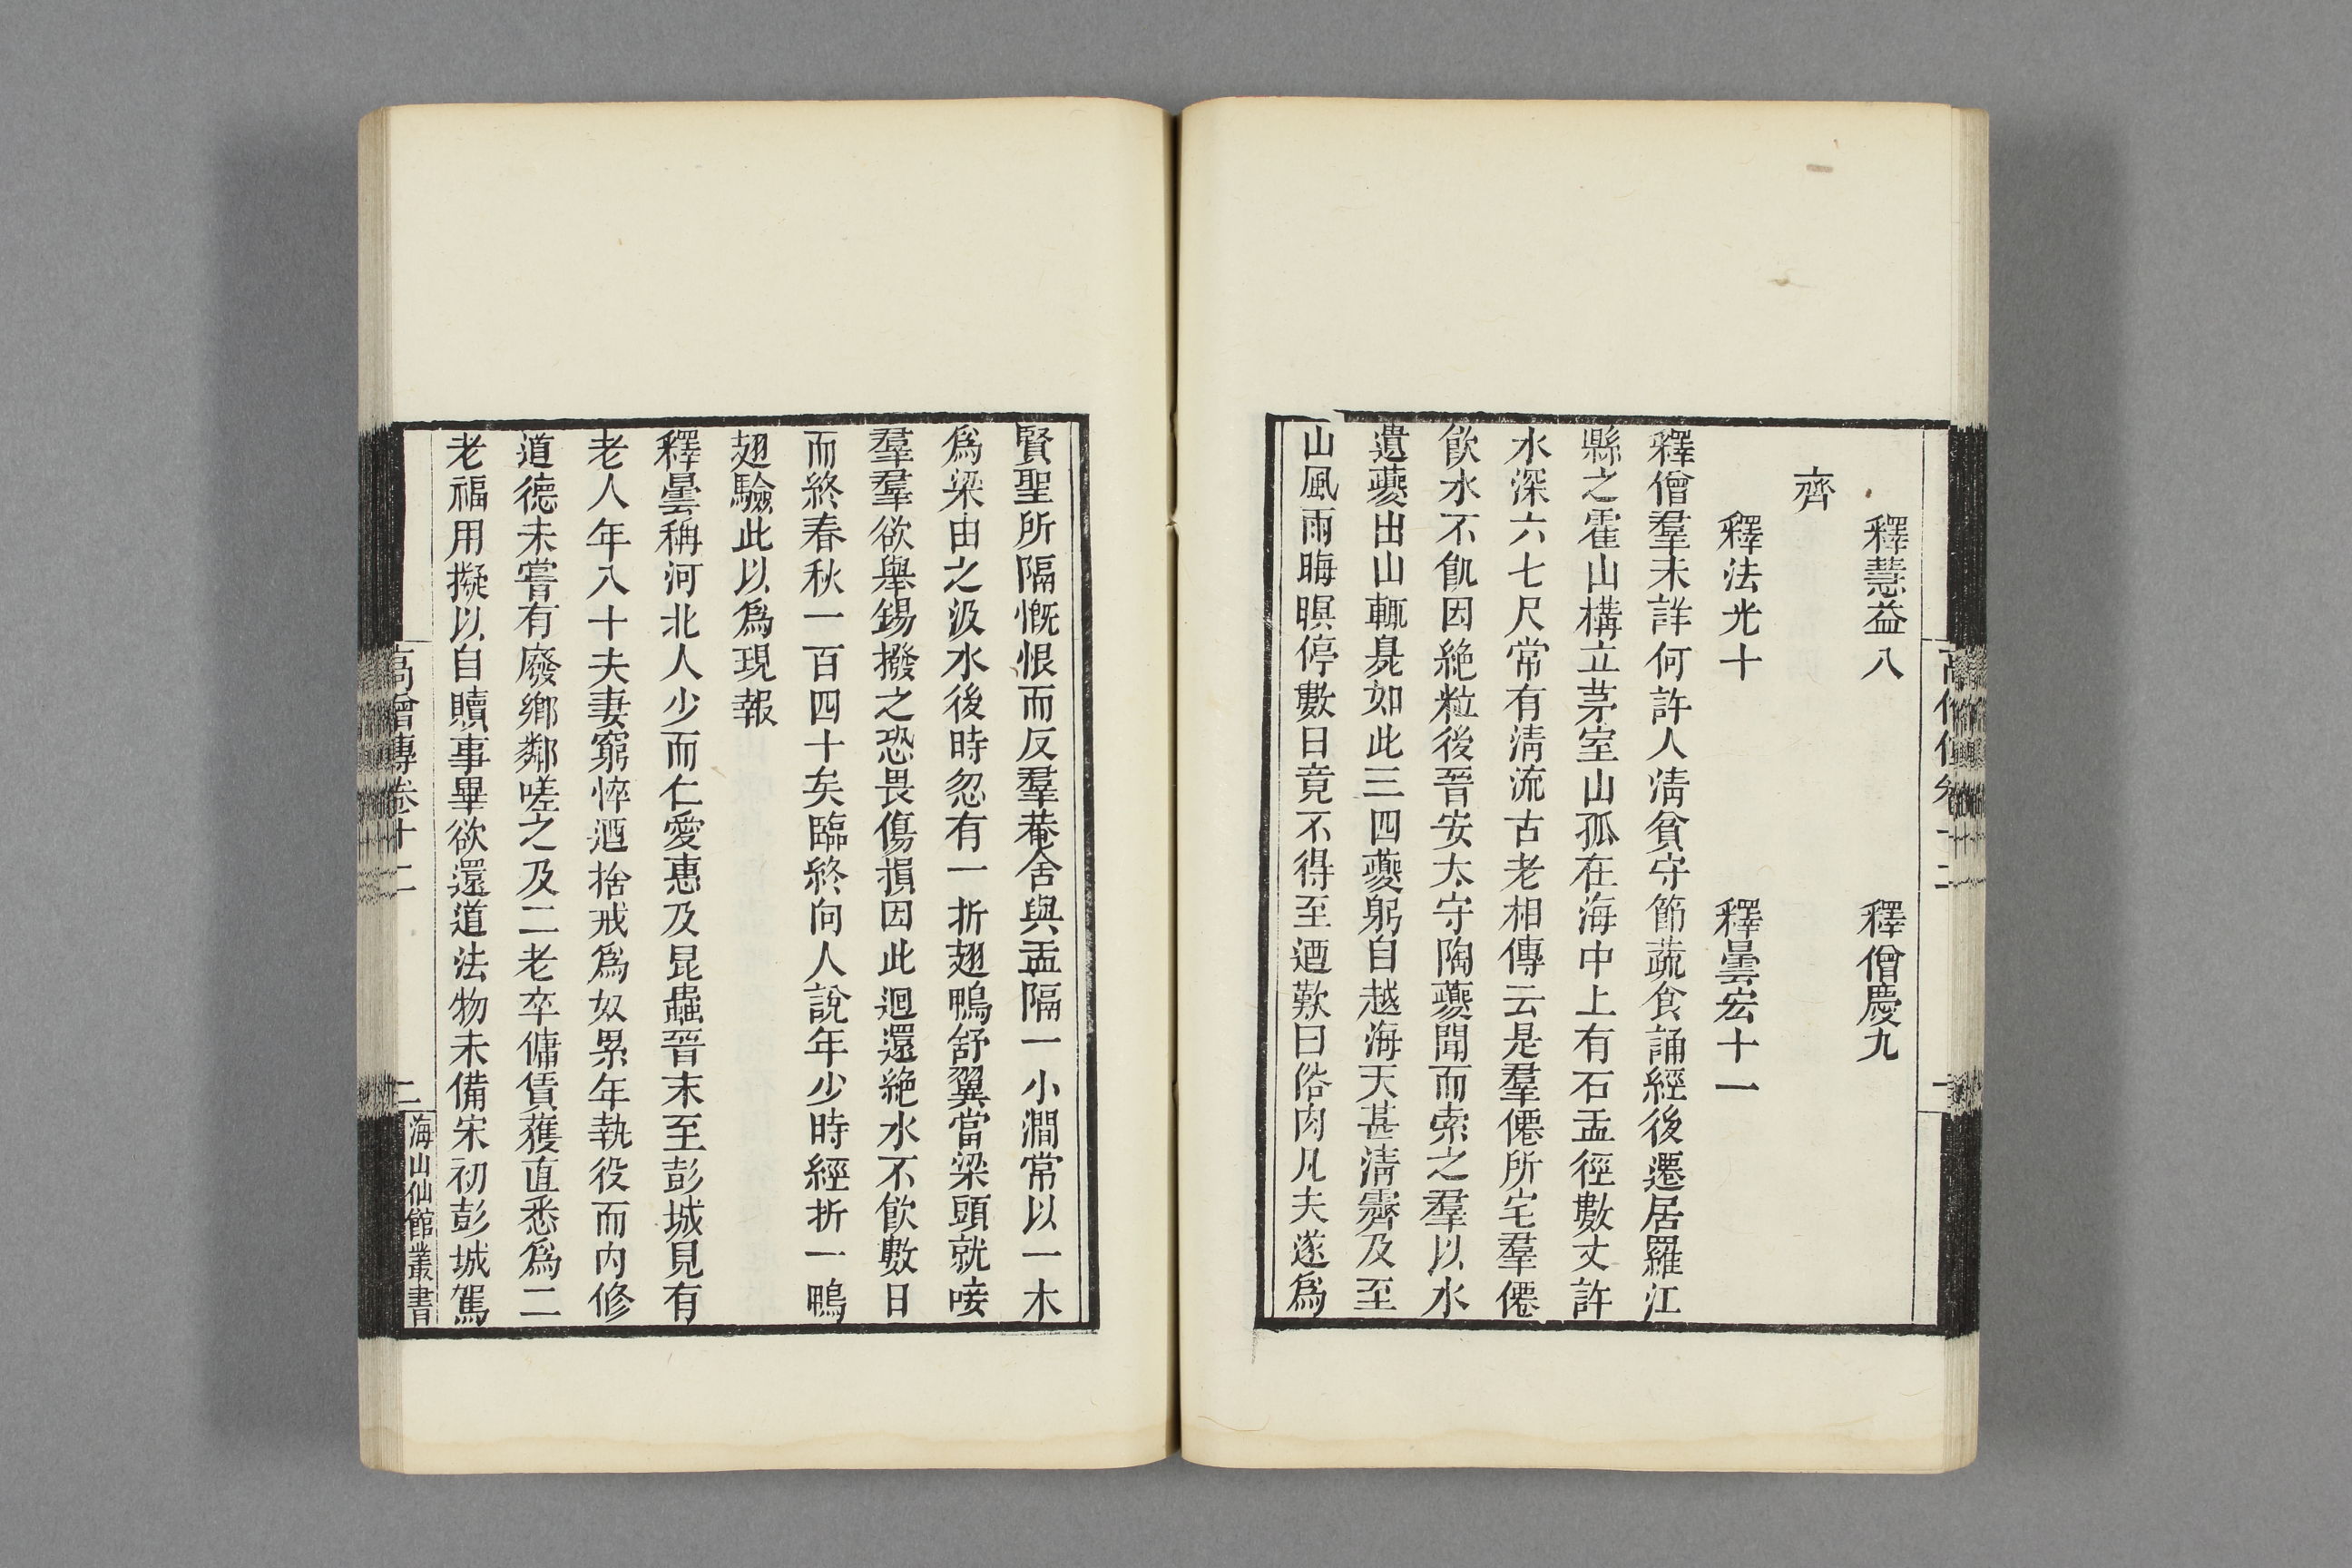 釋慧益八　釋僧慶九
齊
釋法光十　釋曇宏十一
釋僧羣未詳何許人淸貧守節蔬食誦經後遷居羅江
縣之霍山構立茅室山孤在海中上有石盂徑數丈許
水深六七尺常有淸流古老相傳云是羣僊所宅羣僊
飮水不飢因絶粒後晉安太守陶夔聞而索之羣以水
遺夔出山輒臭如此三四夔躬自越海天甚淸霽及至
山風雨晦暝停數日竟不得至迺歎曰俗內凡夫遂爲
賢聖所隔慨恨而反羣菴舍與盂隔一小澗常以一木
爲梁由之汲水後時忽有一折翅鴨舒翼當梁頭就唼
羣羣欲舉錫撥之恐畏傷損因此迴還絶水不飮數日
而終春秋一百四十矣臨終向人說年少時經折一鴨
翅驗此以爲現報
釋曇稱河北人少而仁愛惠及昆蟲晉末至彭城見有
老人年八十夫妻窮悴迺捨戒爲奴累年執役而內修
道德未嘗有廢鄕鄰嗟之及二老卒傭賃獲直悉爲二
老福用擬以自贖事畢欲還道法物未備宋初彭城駕
高僧傳卷十二
二
海山仙館叢書